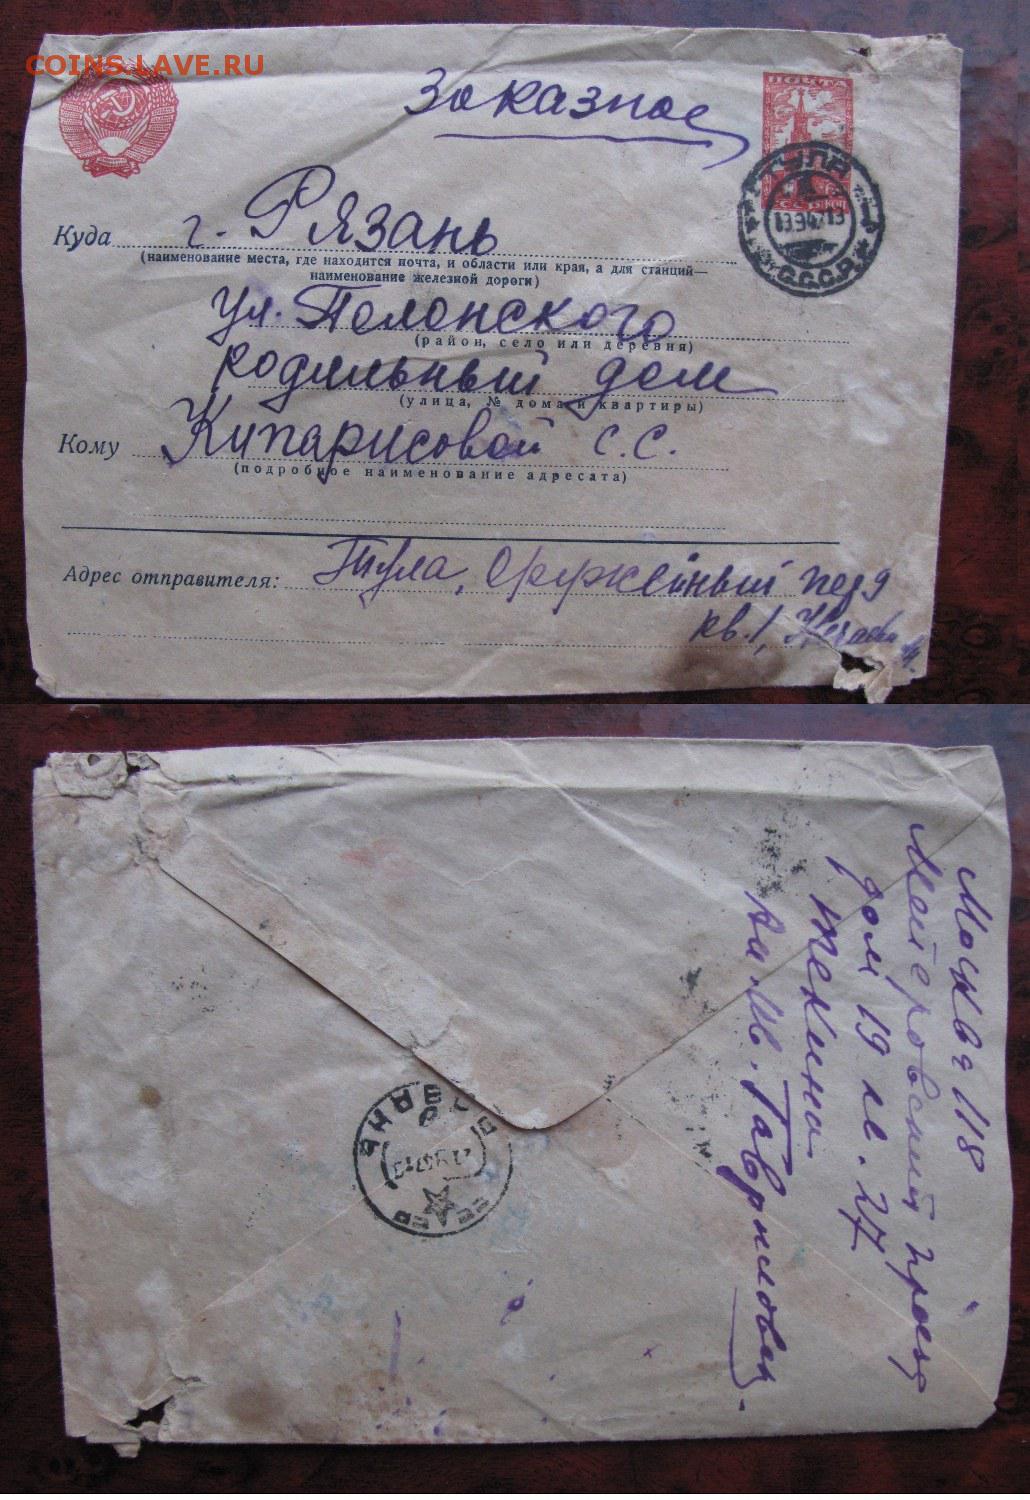 COINS.LAVE.RU
Заказное
ПОЧТА
ТУЛА
СССР
Куда г. Рязань
(наименование места, где находится почта, и области или края, а для станций—
наименование железной дороги)
ул. Полонского
(район, село или деревня)
родильный дом
(улица, № дома и квартиры)
Кому Кипарисовой С.С.
(подробное наименование адресата)
Адрес отправителя: Тула, Оружейный пер 9
кв. 1,
Москва 118
Майеровский проезд
дом 19 кв. 27
Текина
Гавриловна